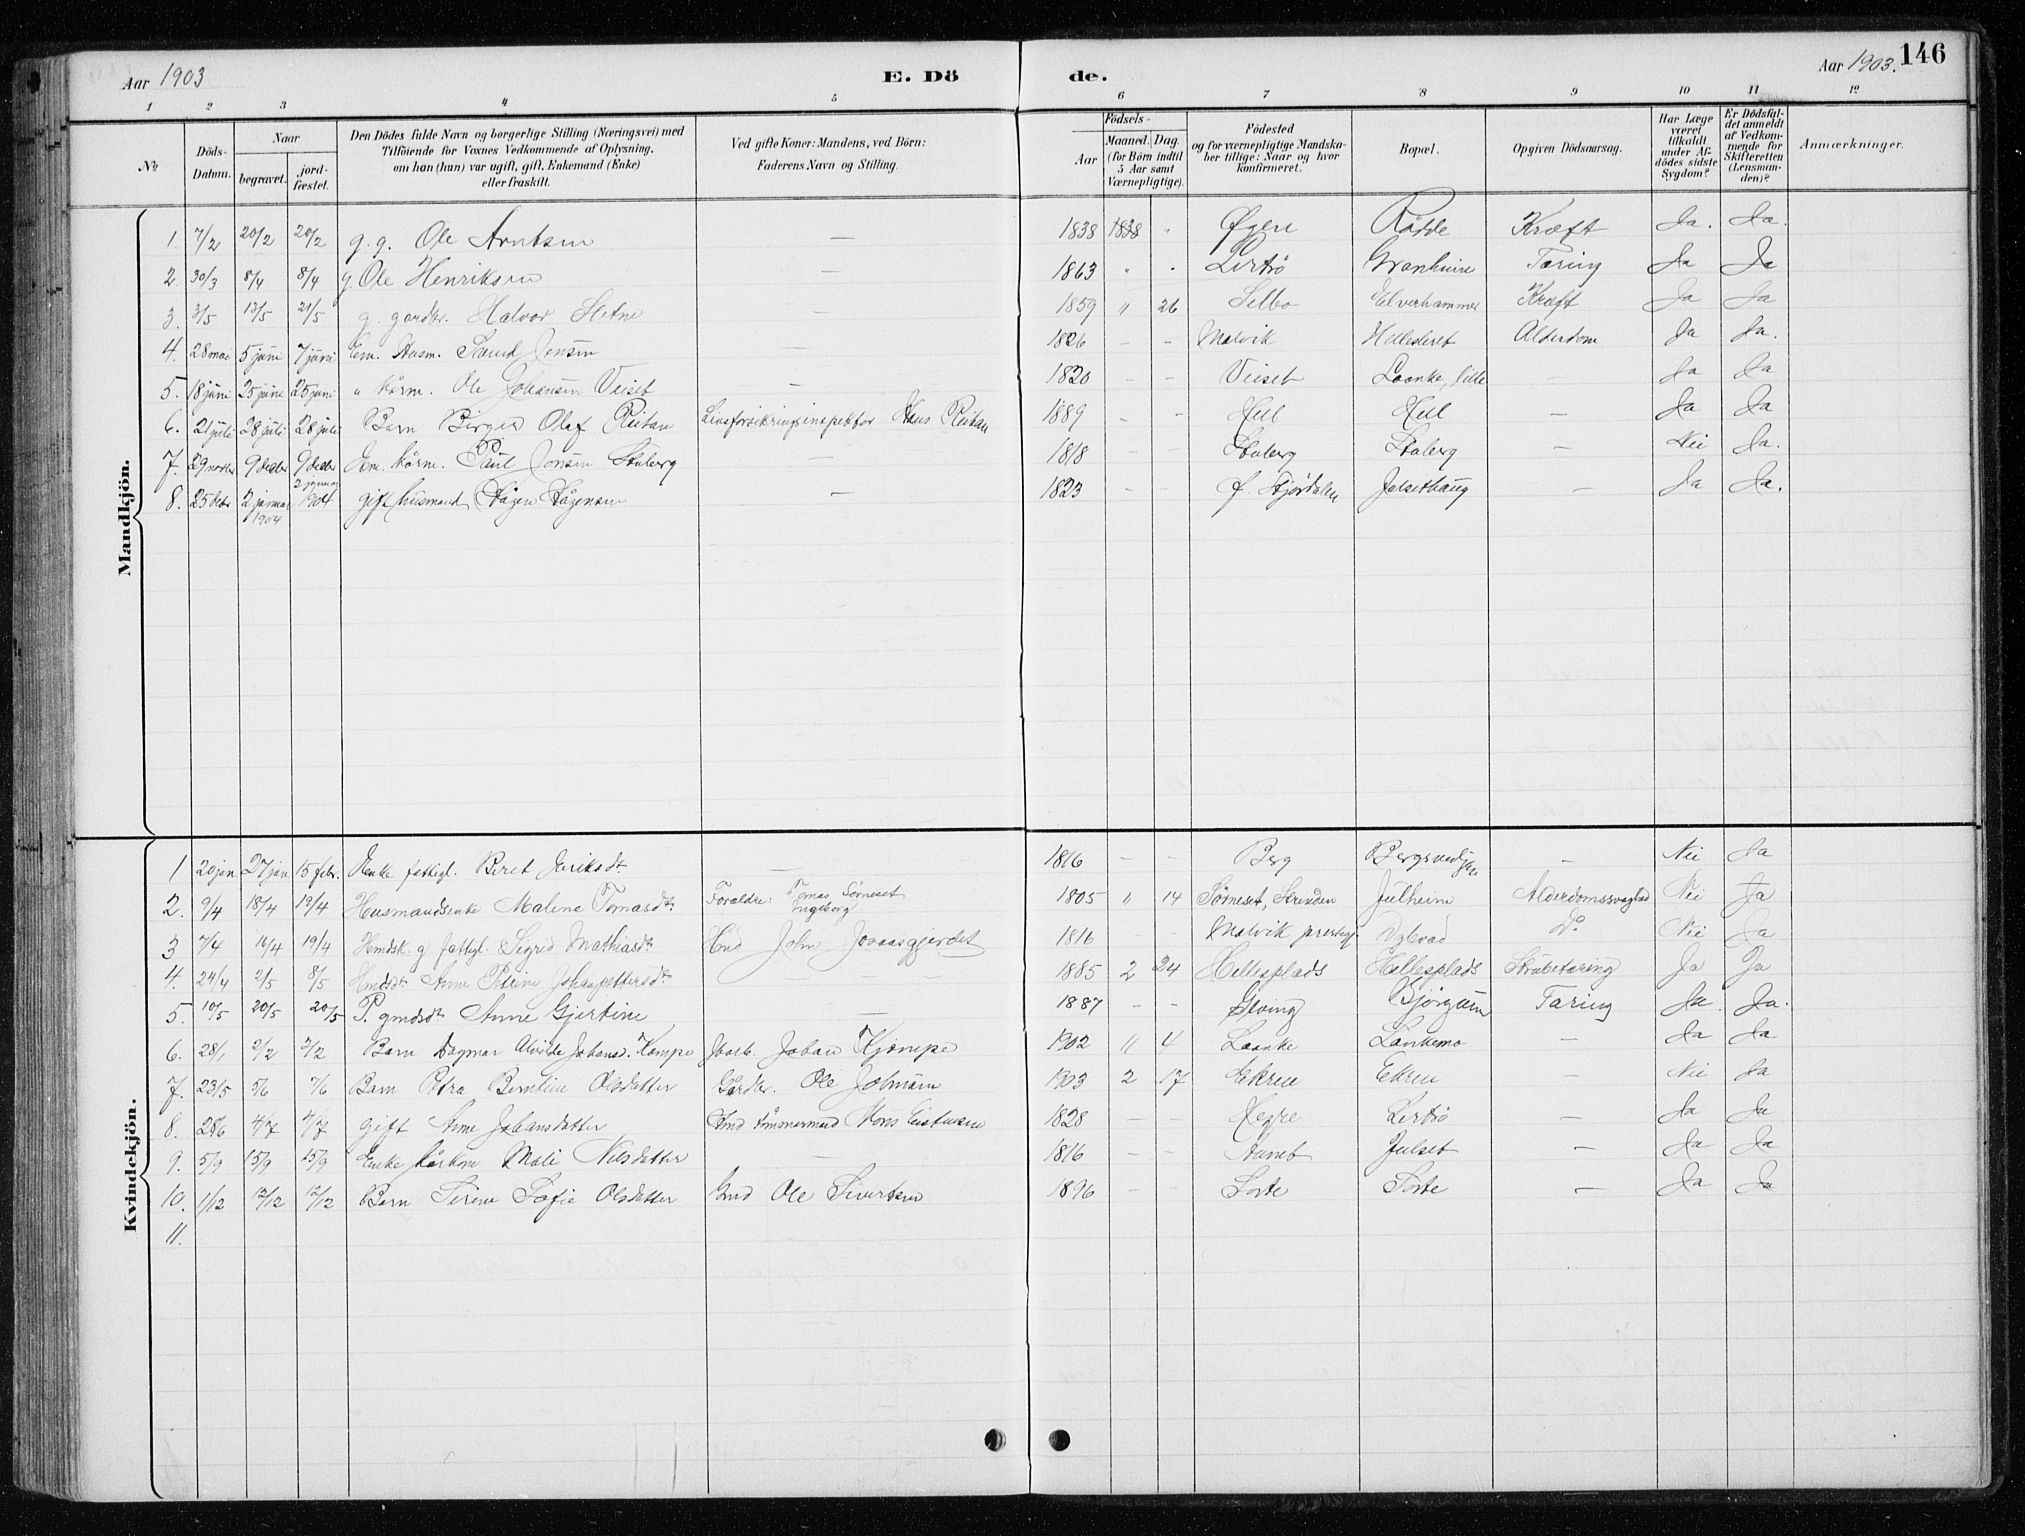 Aar 1903
E. Dö
de.
Aar 1903.
146
1 2 3 4 5 6 7 8 9 10 11 12
No
Döds-Datum.
Naar
begravet.
jord-fæstet.
Den Dödes fulde Navn og borgerlige Stilling (Næringsvei) med
Tilföiende for Voxnes Vedkommende af Oplysning,
om han (hun) var ugift, gift, Enkemand (Enke)
eller fraskilt.
Ved gifte Koner: Mandens, ved Börn:
Faderens Navn og Stilling.
Födsels-
Aar
Maaned. Dag.
(for Börn indtil
5 Aar samt
Værnepligtige).
Födested
og for værnepligtige Mandska-
ber tillige: Naar og hvor
konfirmeret.
Bopæl.
Opgiven Dödsaarsag.
Har Læge
været
tilkaldt
under Af-
dödes sidste
Sygdom?
Er Dödsfal-
det anmeldt
af Vedkom-
mende for
Skifteretten
(Lensman-
den)?
Anmærkninger.
Mandkjön.
1. 7/2 20/2 20/2 g. g. Ole Arntsen — 1838 1838 " Øyen Rödde Kræft Ja. Ja.
2. 30/3 8/4 8/4 g. Ole Henriksen — 1863 " " Lertrö Granheim Tæring Ja Ja
3. 3/5 13/5 21/5 g. gardbr. Halvor Sletne 1859 " 26 Selbo Elverhammer Kræft Ja Ja
4. 28 mai 5 juni 7 juni Em. Husm. Jonsen — 1826 — — Malvik Hellesleret Alderdom Ja Ja.
5. 18 juni 25 juni 25 juni " kårm. Ole Johansen Veiset — 1820 — — Veiset Laanke, lille — Ja Ja
6. 21 juli 28 juli 28 juli Barn Birger Olaf Reitan Livsforsikringsinspektør Hans Reitan 1889 — — Hell Hell — Ja Ja
7. 29 novbr 9 decbr 9 decbr Em. kårm. Paul Jonsen Stuberg — 1818 — — Stuberg Stuberg — Nei Ja.
8. 25 decbr 2 januar 1904 2 januar 1904 gift husmand Hågen Hågensen — 1823 — — f. Stjørdalen Julsethaug — Ja Ja.
Kvindekjön.
1 20 jan 27 jan 15 febr. Enke fattigl. Beret Eriksdt. — 1816 — — Berg — Nei Ja
2. 9/4 18/4 19/4 Husmandsenke Malena Tomasdt. Foraldre: Tomas Sørneset Ingeborg 1805 " 14 Sørneset, Strinden Julheim Alderdomssvaghed Nei Ja
3 7/4 16/4 19/4 Hmdsk. g fattigl. Sigrid Mathiasdt. John Jovaasgjerdet 1816 — — Malvik prestegj. Do. Nei Ja
4. 24/4 2/5 8/5 Hmdsdt. Anne Petrine Johanpettersdt. — — 1885 2 24 Hellesplads Hellesplads Strubetæring Ja Ja
5. 10/5 20/5 20/5 P. gmdsdt. Anne Gjertine — 1887 — — Gjeving Bjørgum Tæring Ja Ja.
6. 28/1 2/2 2/2 Barn Dagmar Alvilde Johansd. Kæmpe Johan Kjæmpe 1902 " 4 Laanke Lankemo — Ja Ja
7. 23/5 5/6 7/6 Barn Petra Berntine Olsdatter Gårdbr. Ole Johnsen 1903 2 17 Ekren Ekren — Nei Ja
8. 28/6 4/7 4/7 gift Anne Johansdatter Tömmermand Mons Eistensen 1828 — — Hegre Lertrö — Ja Ja
9. 5/9 15/9 15/9 Enke kårkone Mali Nilsdatter — 1816 — — Julset — Ja Ja
10. 1/12 12/12 12/12 Barn Serine Sofie Olsdatter Gmd Ole Sivertsen 1896 — — Sorte Sorte — Ja Ja
11.